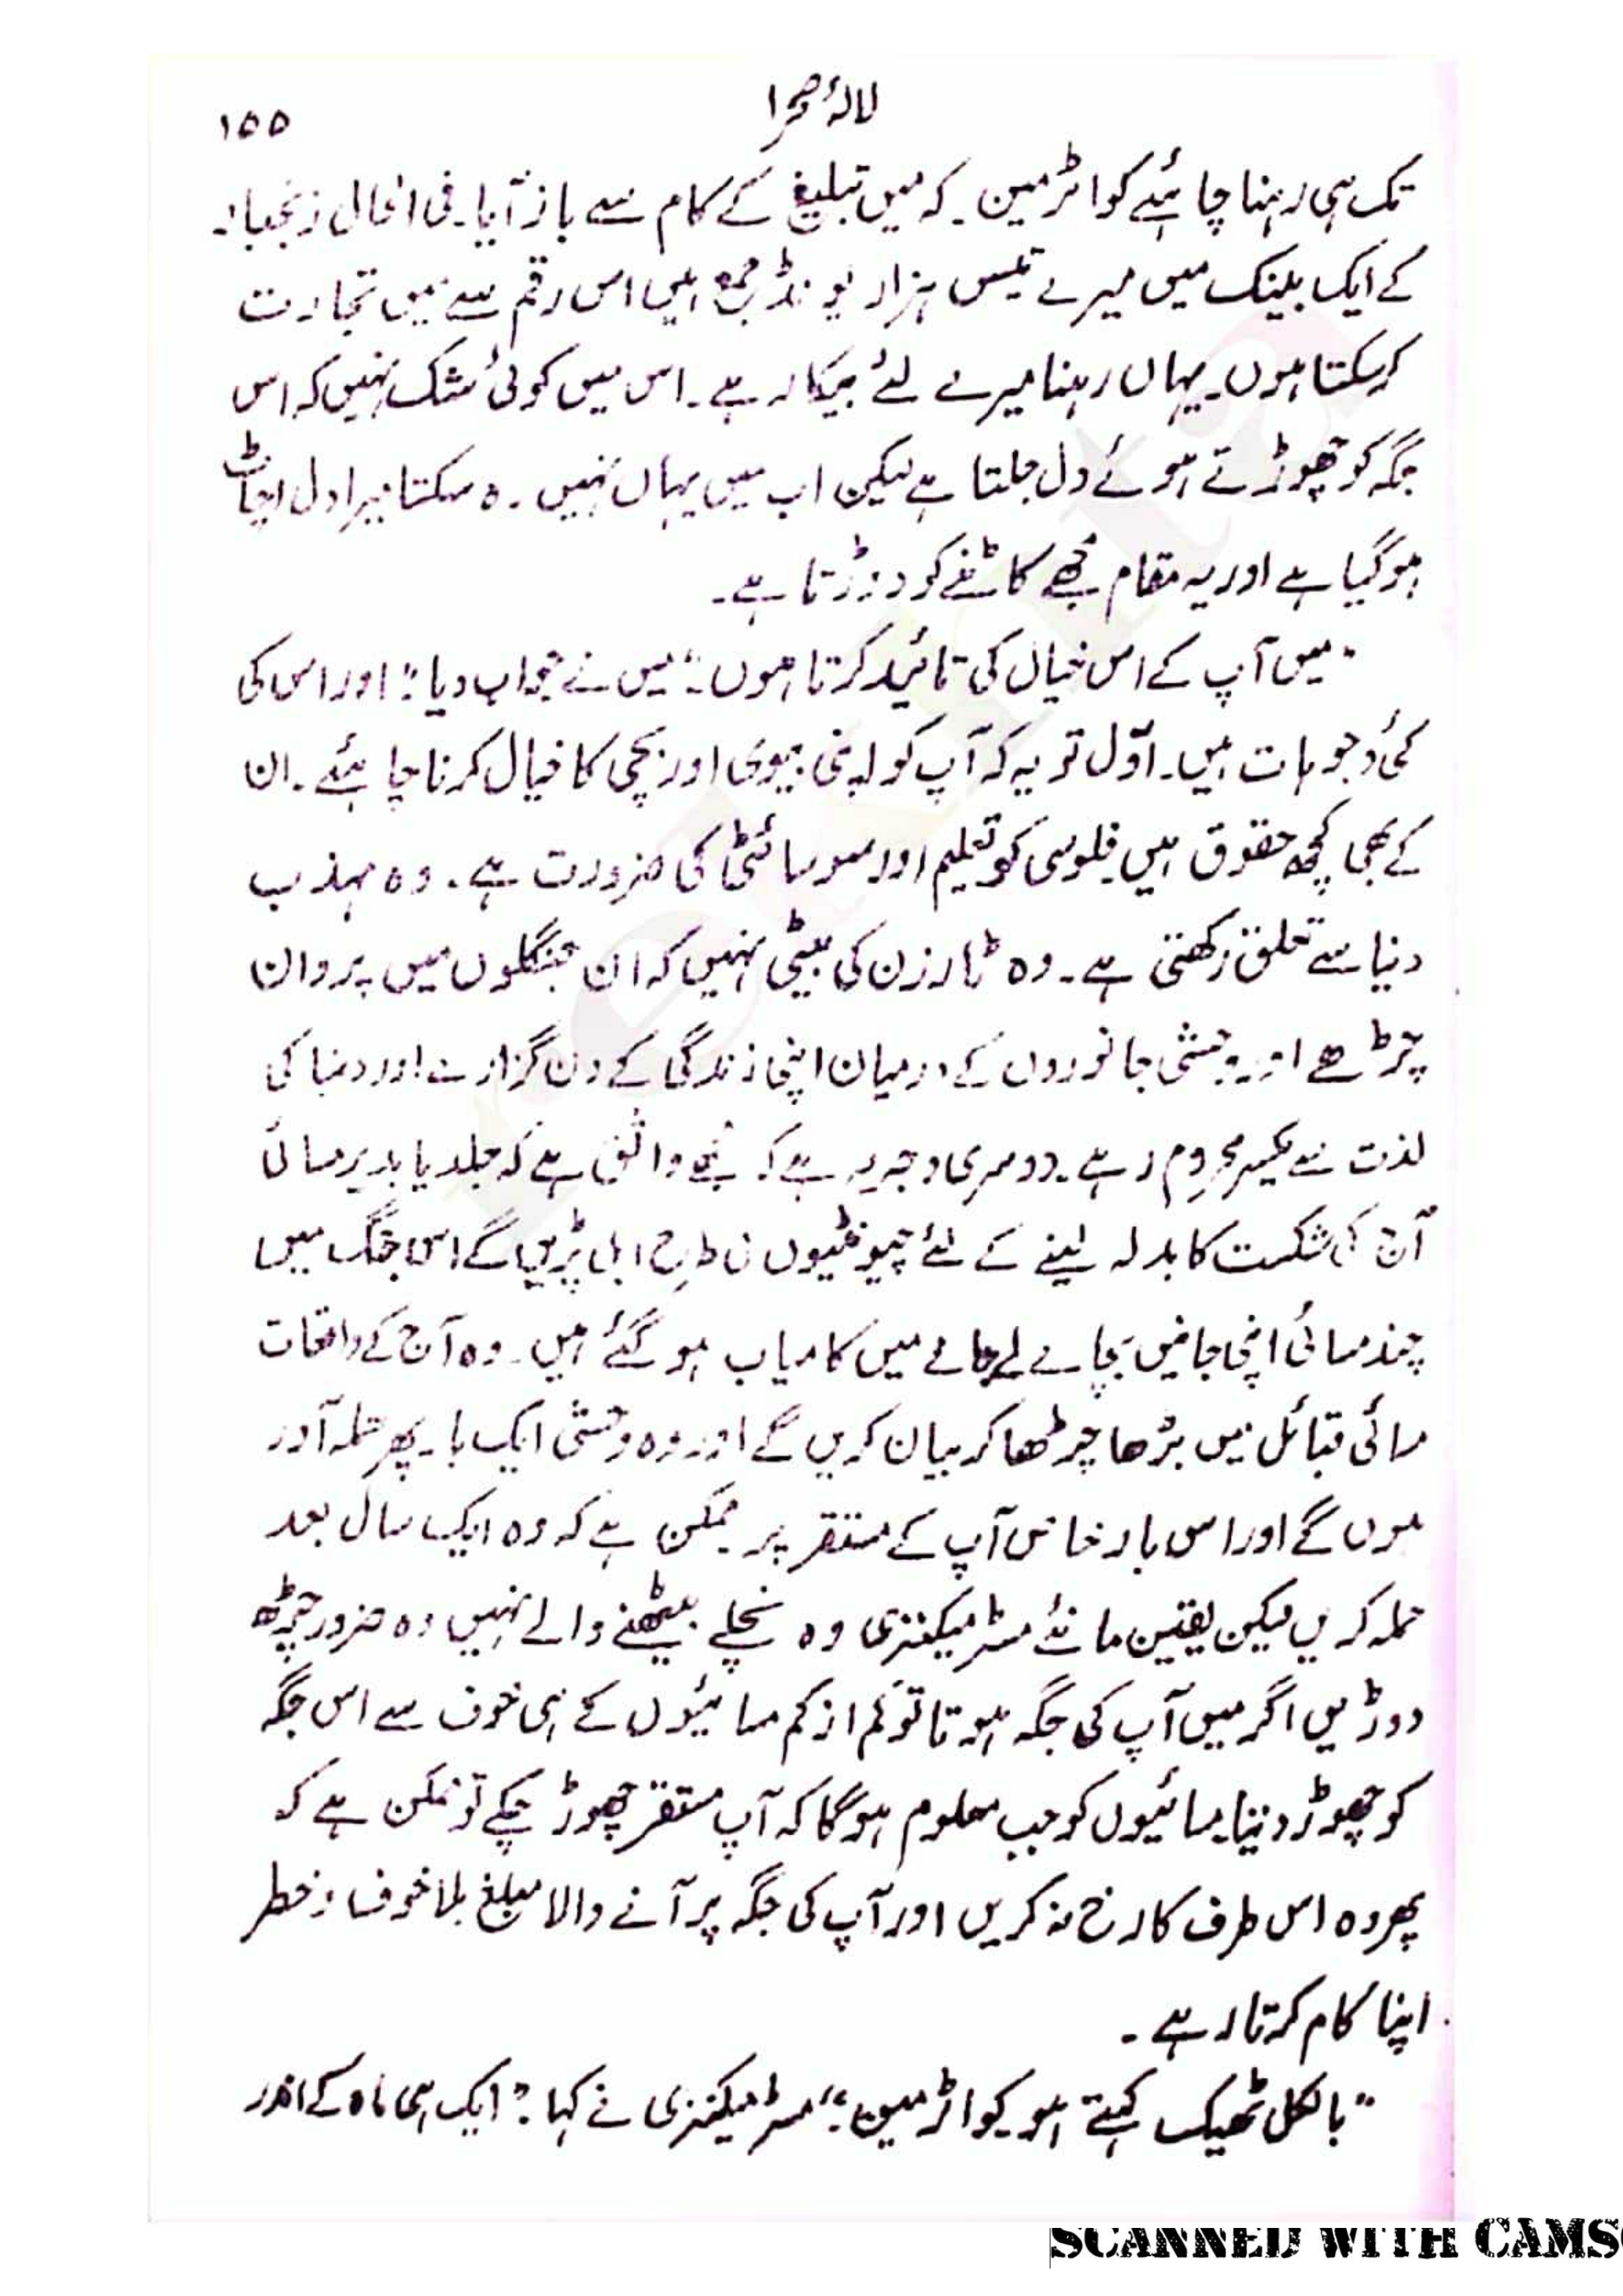 لالۂ صحرا
۱۵۵
تک ہی رہنا چاہئیے کواٹرمین۔ کہ میں تبلیغ کے کام سے باز آیا۔ فی الحال زنجبار
کے ایک بینک میں میرے تیس ہزار پونڈ جمع ہیں اس رقم سے میں تجارت
کرسکتا ہوں۔ یہاں رہنا میرے لئے بیکار ہے۔ اس میں کوئی شک نہیں کہ اس
جگہ کو چھوڑتے ہوئے دل جلتا ہے لیکن اب میں یہاں نہیں رہ سکتا میرا دل اچاٹ
ہوگیا ہے اور یہ مقام مجھے کاٹنے کو دوڑتا ہے۔
"میں آپ کے اس خیال کی تائید کرتا ہوں۔" میں نے جواب دیا: "اور اس کی
کئی وجوہات ہیں۔ اوّل تو یہ کہ آپ کو اپنی بیوی اور بچی کا خیال کرنا چاہئیے۔ ان
کے بھی کچھ حقوق ہیں فلوسی کو تعلیم اور سوسائٹی کی ضرورت ہے۔ وہ مہذب
دنیا سے تعلق رکھتی ہے۔ وہ ٹارزن کی بیٹی نہیں کہ ان جنگلوں میں پروان
چڑھے اور وحشی جانوروں کے درمیان اپنی زندگی کے دن گزارے اور دنیا کی
لذت سے یکسر محروم رہے۔ دوسری وجہ یہ ہے کہ مجھے واثق ہے کہ جلد یا بدیر مسائی
آج کی شکست کا بدلہ لینے کے لئے چیونٹیوں کی طرح ابل پڑیں گے اس جنگ میں
چند مسائی اپنی جانیں بچالے جانے میں کامیاب ہو گئے ہیں۔ وہ آج کے واقعات
مسائی قبائل میں بڑھا چڑھا کر بیان کریں گے اور وہ وحشی ایک بار پھر حملہ آور
ہوں گے اور اس بار خاص آپ کے مستقر پر ممکن ہے کہ وہ ایک سال بعد
حملہ کریں لیکن یقین مانئے مسٹر میکنزی وہ نچلے بیٹھنے والے نہیں وہ ضرور چڑھ
دوڑیں اگر میں آپ کی جگہ ہوتا تو کم از کم مسائیوں کے ہی خوف سے اس جگہ
کو چھوڑ دیتا۔ مسائیوں کو جب معلوم ہوگا کہ آپ مستقر چھوڑ چکے تو ممکن ہے کہ
پھر وہ اس طرف کا رخ نہ کریں اور آپ کی جگہ پر آنے والا مبلغ بلا خوف و خطر
اپنا کام کرتا رہے۔
"بالکل ٹھیک کہتے ہو کیواٹرمین۔" مسٹر میکنزی نے کہا: "ایک ہی ماہ کے اندر
SCANNED WITH CAMS